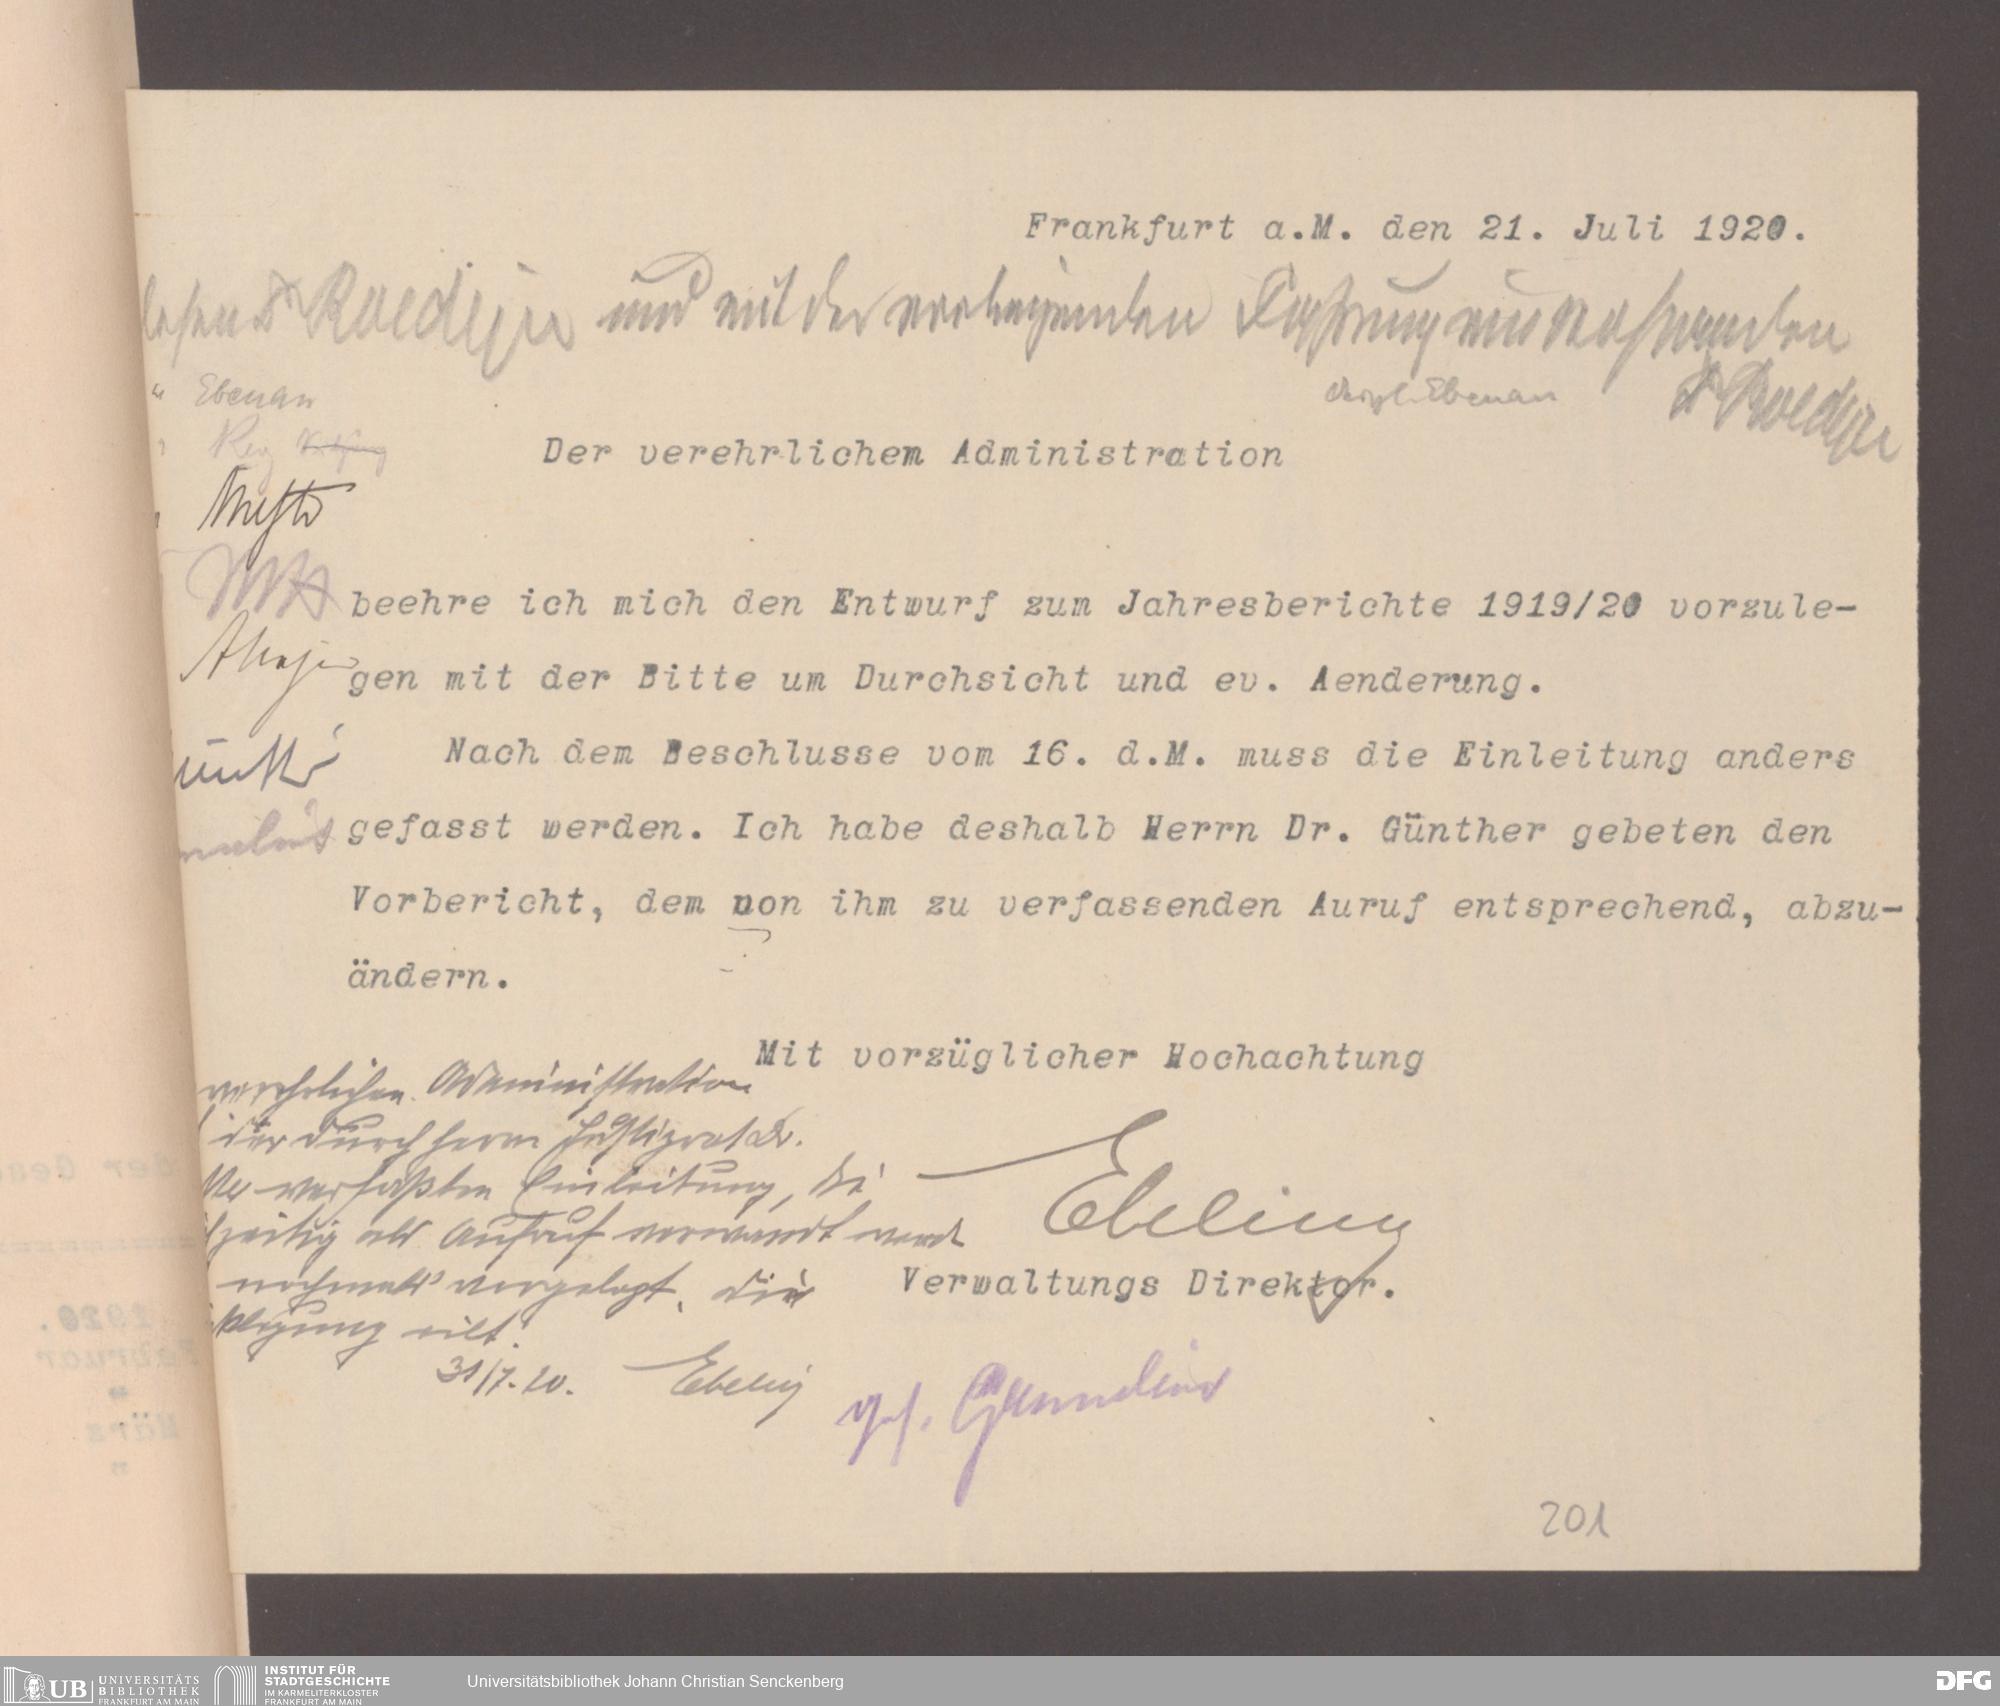 Frankfurt a.M. den 21. Juli 1920.
Roediger und mit der Fassung einverstanden
" Ebenau
desgl. Ebenau
Dr Roediger
Der verehrlichem Administration
beehre ich mich den Entwurf zum Jahresberichte 1919/20 vorzule-
gen mit der Bitte um Durchsicht und ev. Aenderung.
Nach dem Beschlusse vom 16. d.M. muss die Einleitung anders
gefasst werden. Ich habe deshalb Herrn Dr. Günther gebeten den
Vorbericht, dem von ihm zu verfassenden Auruf entsprechend, abzu-
ändern.
Mit vorzüglicher Hochachtung
Ebeling
Verwaltungs Direktor.
verehrlichen Administration
die durch Herrn Justizrat Dr.
verfaßten Einleitung, die
zeitig als Aufruf verwandt werd
nochmals vorgelegt. Die
eilt.
31/7.20. Ebeling
ges.
201
der Gea
1920.
Februar
"
März
"
UB UNIVERSITÄTS
BIBLIOTHEK
FRANKFURT AM MAIN
INSTITUT FÜR
STADTGESCHICHTE
IM KARMELITERKLOSTER
FRANKFURT AM MAIN
Universitätsbibliothek Johann Christian Senckenberg
DFG